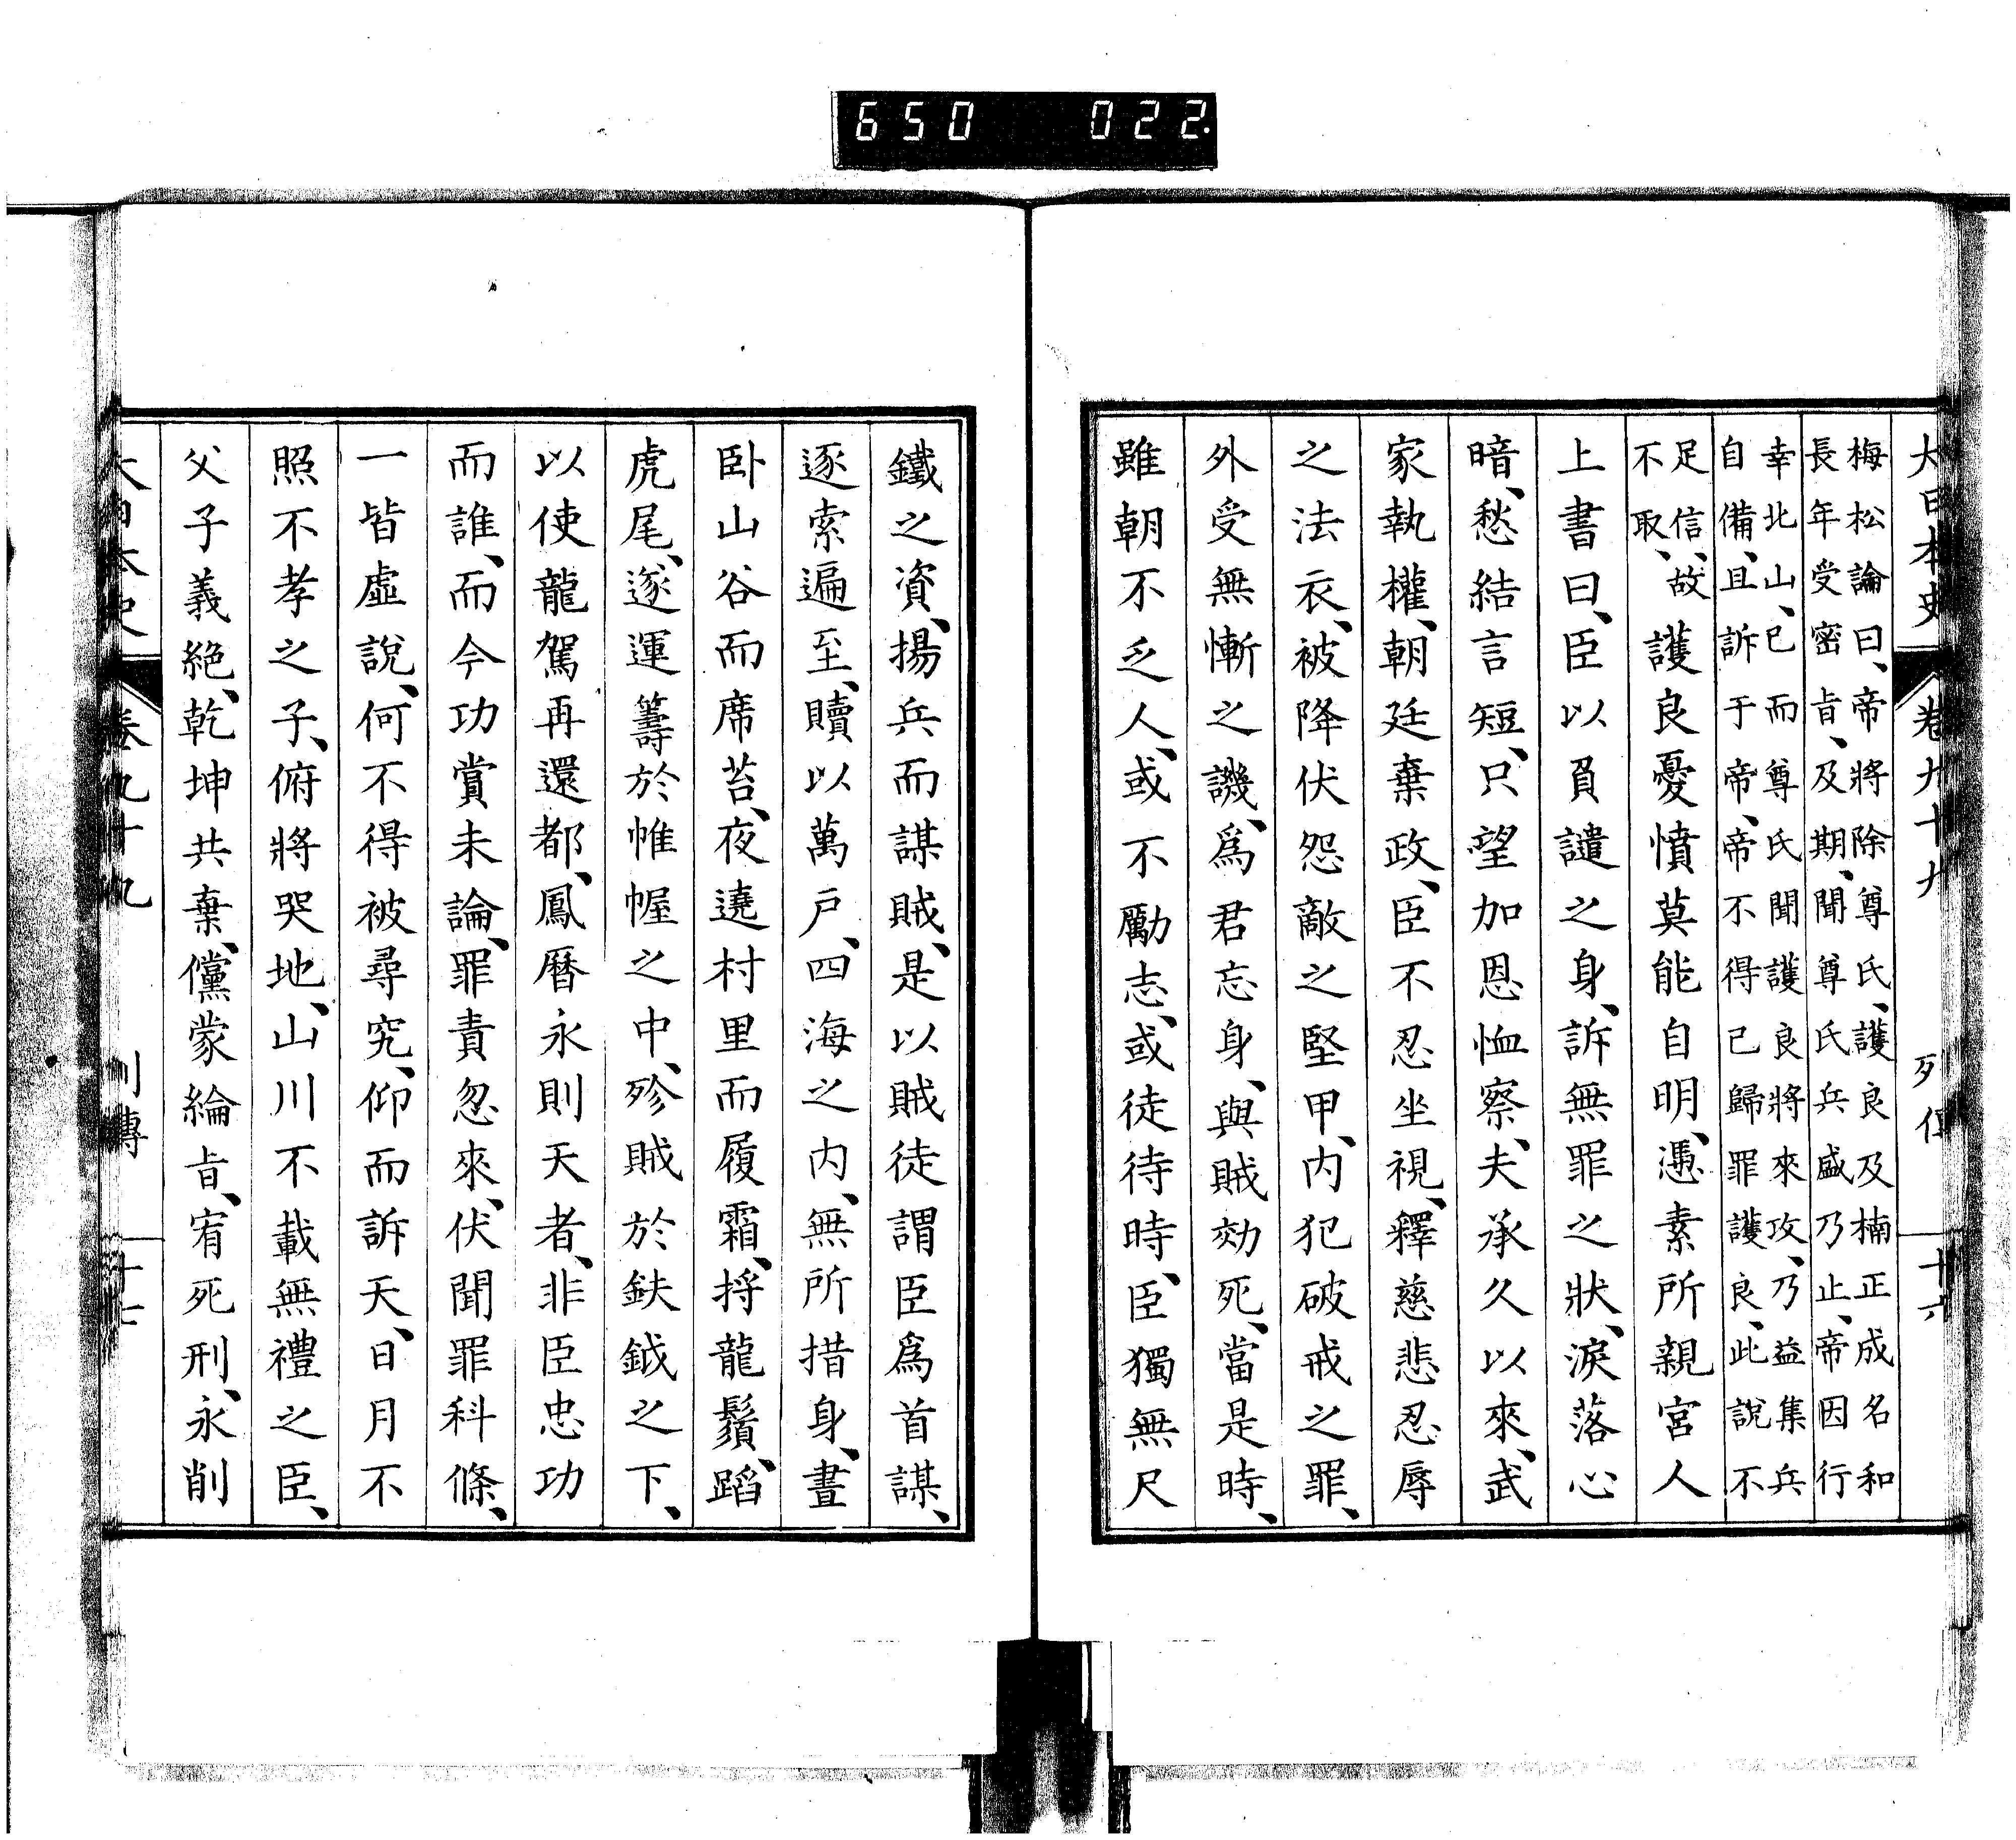 650 022.
大日本史 卷九十九 列傳 十六
梅松論曰、帝將除尊氏、護良及楠正成名和
長年受密旨、及期、聞尊氏兵盛乃止、帝因行
幸北山、已而尊氏聞護良將來攻、乃益集兵
自備、且訴于帝、帝不得已歸罪護良、此說不
足信、故
不取、
護良憂憤莫能自明、憑素所親宮人
上書曰、臣以負譴之身、訴無罪之狀、淚落心
暗、愁結言短、只望加恩恤察、夫承久以來、武
家執權、朝廷棄政、臣不忍坐視、釋慈悲忍辱
之法衣、被降伏怨敵之堅甲、內犯破戒之罪、
外受無慚之譏、爲君忘身、與賊効死、當是時、
雖朝不乏人、或不勵志、或徒待時、臣獨無尺
鐵之資、揚兵而謀賊、是以賊徒謂臣爲首謀、
逐索遍至、贖以萬戶、四海之內、無所措身、晝
臥山谷而席苔、夜遶村里而履霜、捋龍鬚、蹈
虎尾、遂運籌於帷幄之中、殄賊於鈇鉞之下、
以使龍駕再還都、鳳曆永則天者、非臣忠功
而誰、而今功賞未論、罪責忽來、伏聞罪科條、
一皆虛說、何不得被尋究、仰而訴天、日月不
照不孝之子、俯將哭地、山川不載無禮之臣、
父子義絕、乾坤共棄、儻蒙綸旨、宥死刑、永削
大日本史 卷九十九 列傳 十七